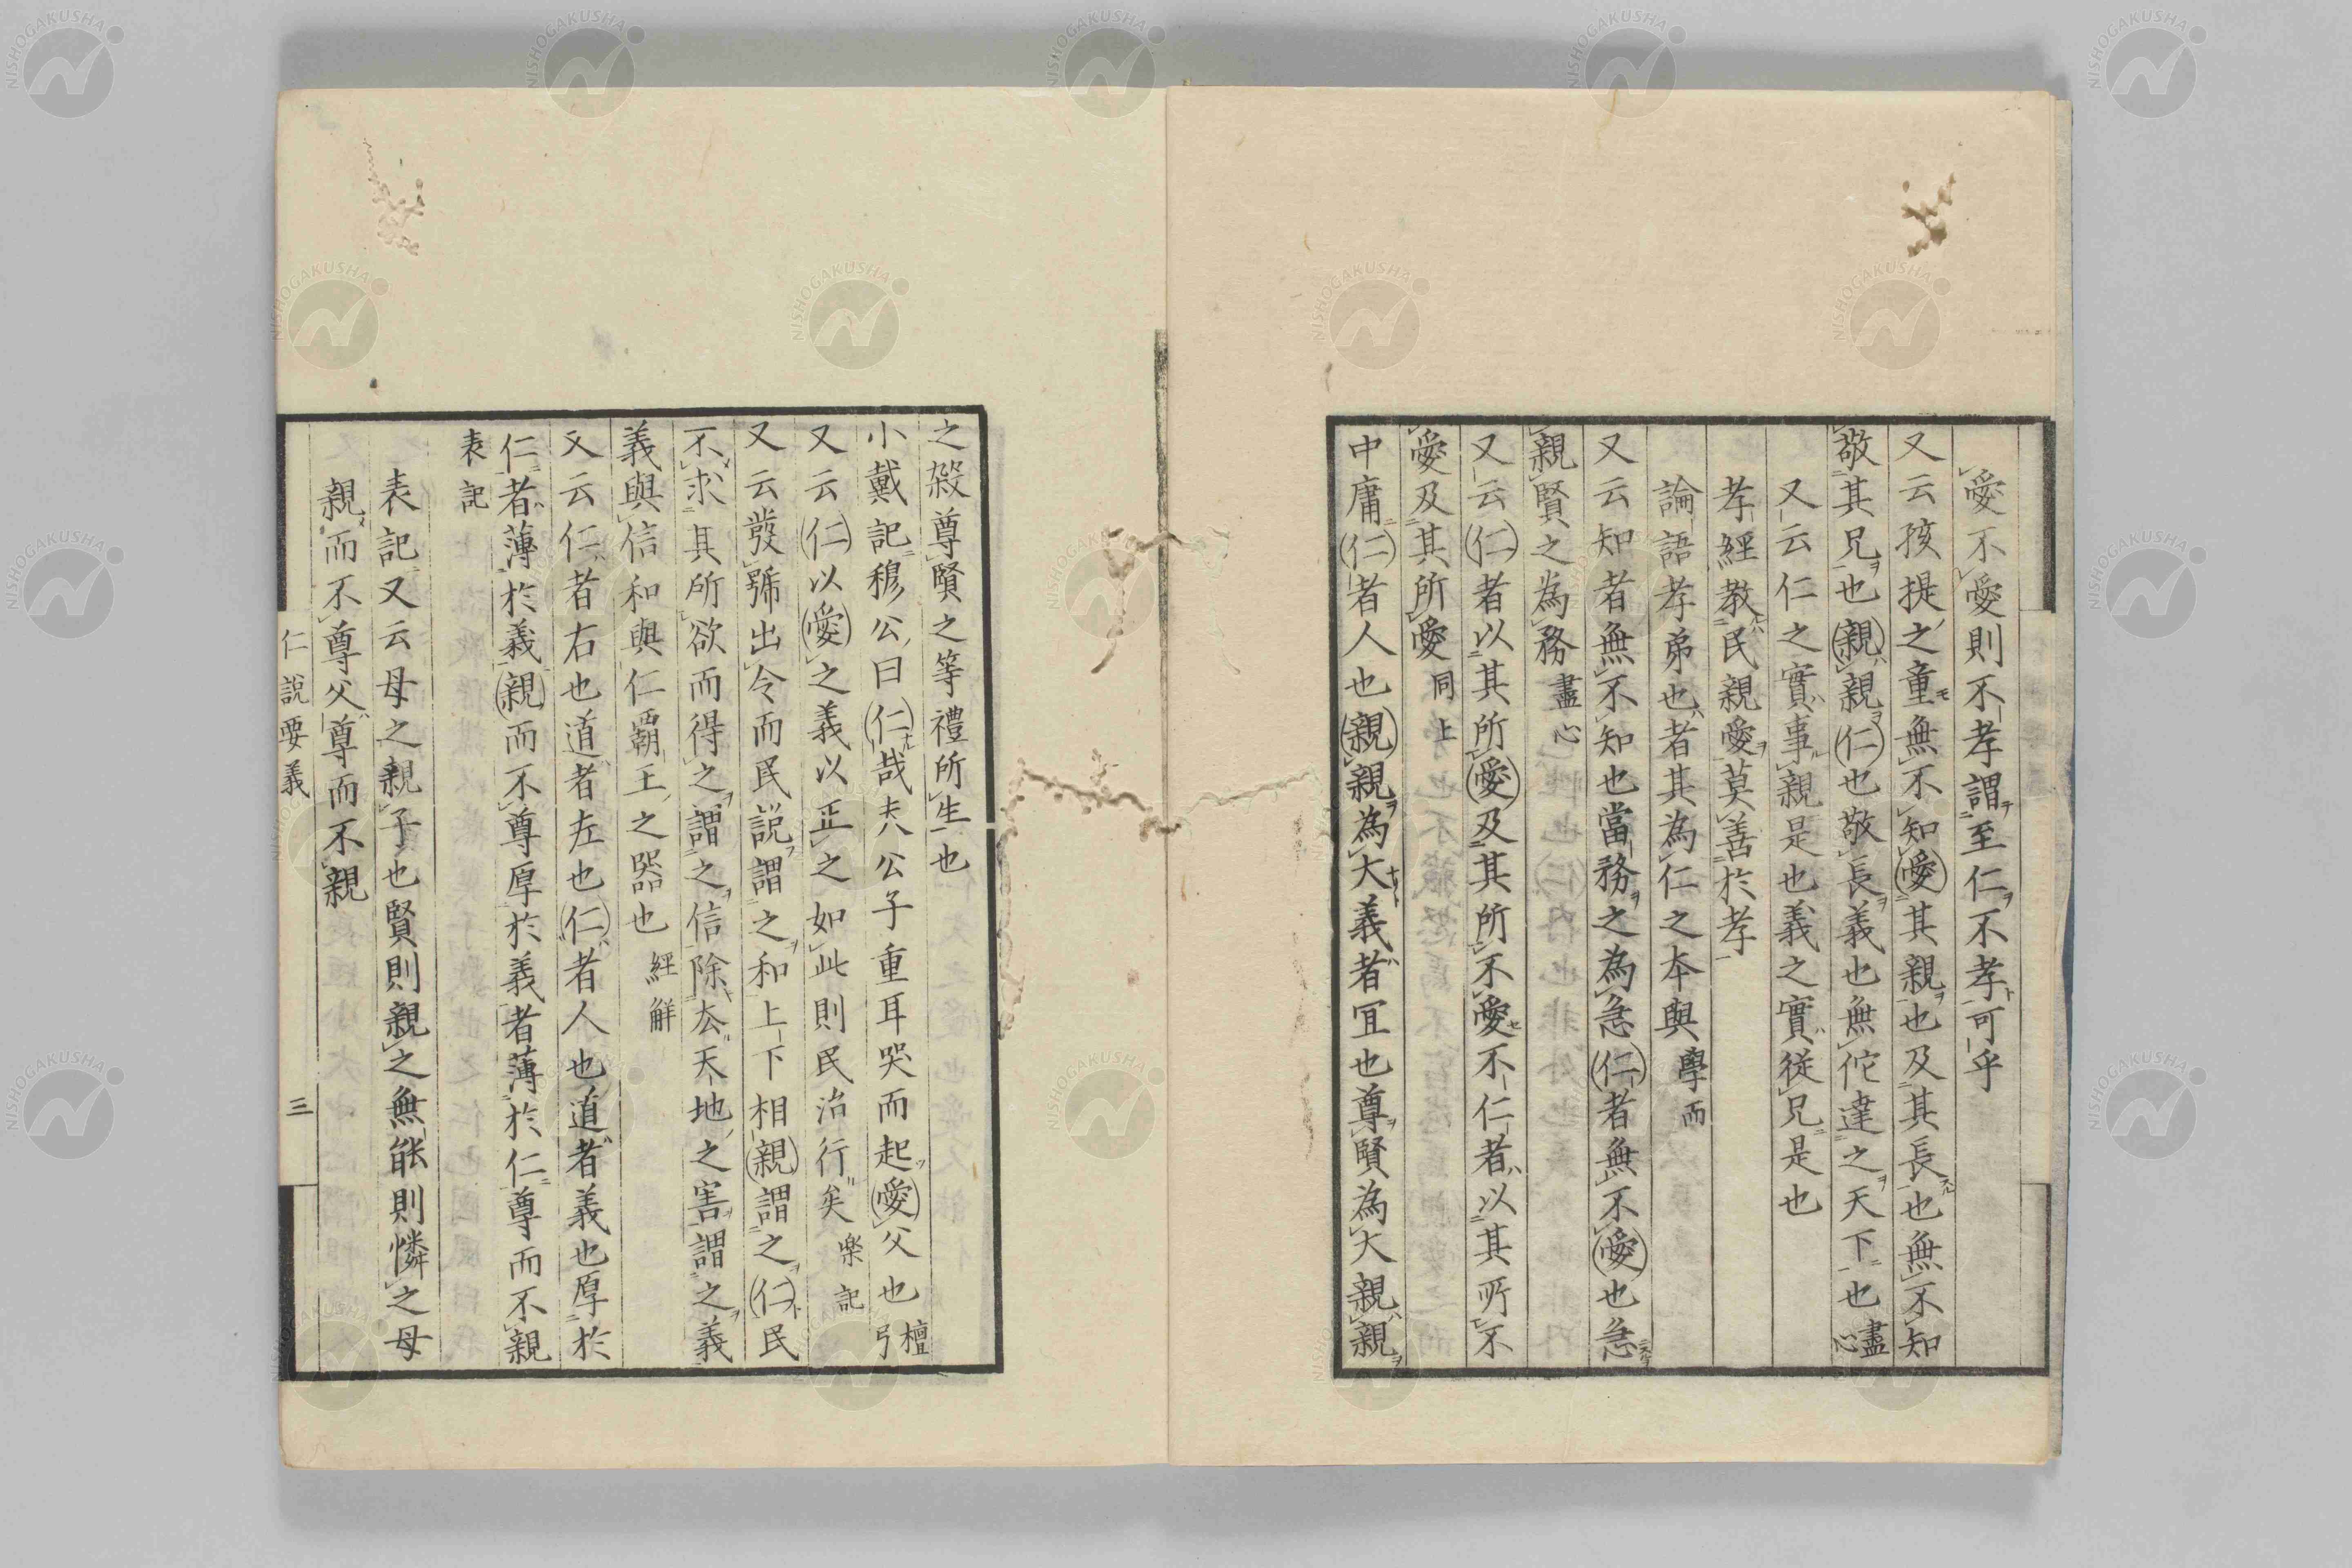 愛不愛則不孝謂至仁不孝可乎
又云孩提之童無不知愛其親也及其長也無不知
敬其兄也親親仁也敬長義也無佗達之天下也盡心
又云仁之實事親是也義之實從兄是也
孝經教民親愛莫善於孝
論語孝弟也者其為仁之本與學而
又云知者無不知也當務之為急仁者無不愛也急
親賢之為務盡心
又云仁者以其所愛及其所不愛不仁者以其所不
愛及其所愛同上
中庸仁者人也親親為大義者冝也尊賢為大親親
之殺尊賢之等禮所生也
小戴記穆公曰仁哉夫公子重耳哭而起愛父也檀弓
又云仁以愛之義以正之如此則民治行矣楽記
又云發號出令而民説謂之和上下相親謂之仁民
不求其所欲而得之謂之信除去天地之害謂之義
義與信和與仁覇王之器也經解
又云仁者右也道者左也仁者人也道者義也厚於
仁者薄於義親而不尊厚於義者薄於仁尊而不親
表記
表記又云母之親子也賢則親之無能則憐之母
親而不尊父尊而不親
仁說要義
三
NISHOGAKUSHA